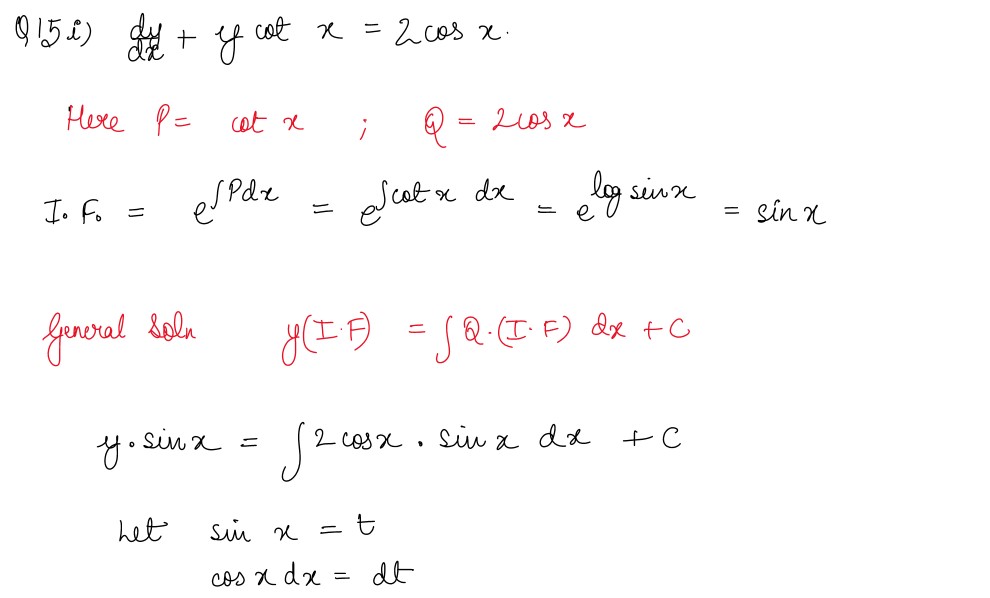 Q15 i) dy/dx + y cot x = 2 cos x.
Here P = cot x ; Q = 2cos x
I.F. = e^∫Pdx = e^∫cot x dx = e^log sinx = sin x
General Soln y(I.F) = ∫Q.(I.F) dx + C
y.sinx = ∫2 cosx . sin x dx + C
Let sin x = t
cos x dx = dt